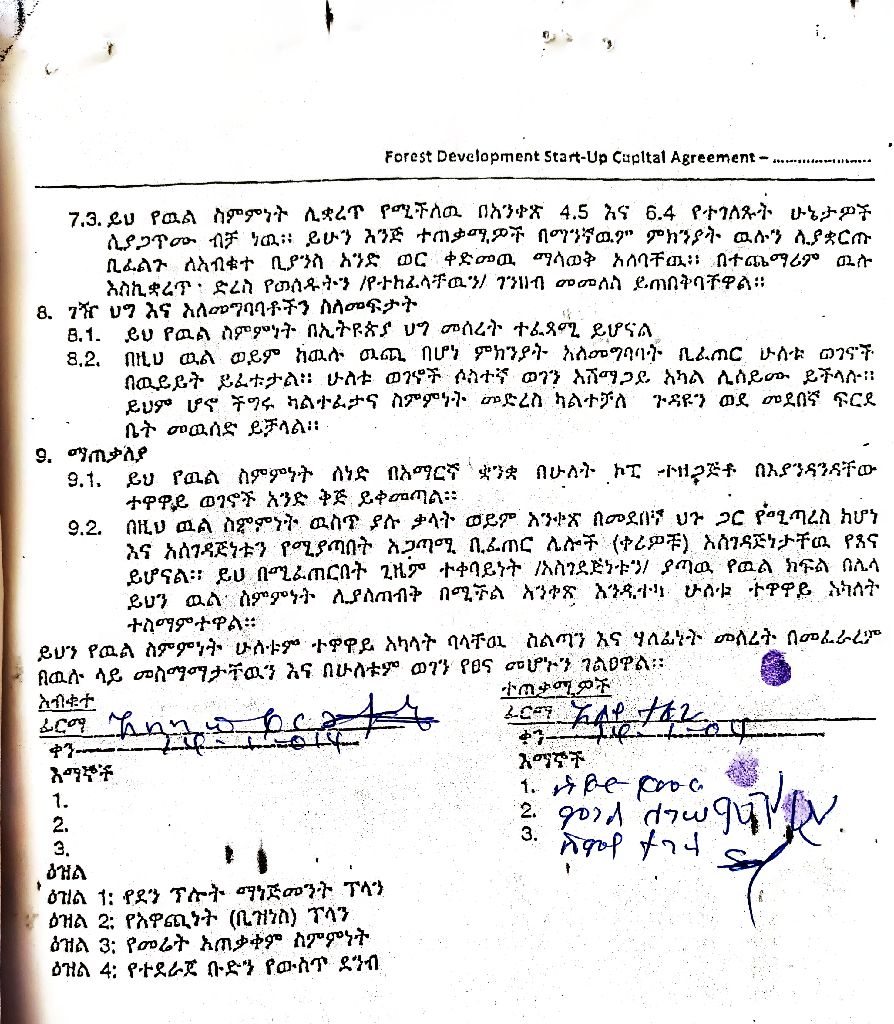 Forest Development Start-Up Capital Agreement – ........................
7.3. ይህ የዉል ስምምነት ሊቋረጥ የሚችለዉ በአንቀጽ 4.5 እና 6.4 የተገለጹት ሁኔታዎች
ሲያጋጥሙ ብቻ ነዉ። ይሁን እንጅ ተጠቃሚዎች በማንኛዉም ምክንያት ዉሉን ሊያቋርጡ
ቢፈልጉ ለአብቁተ ቢያንስ አንድ ወር ቀድመዉ ማሳወቅ አለባቸዉ። በተጨማሪም ዉሉ
እስኪቋረጥ ድረስ የወሰዱትን /የተከፈላቸዉን/ ገንዘብ መመለስ ይጠበቅባቸዋል።
8. ገዥ ህግ እና አለመግባባቶችን ስለመፍታት
8.1. ይህ የዉል ስምምነት በኢትዩጵያ ህግ መሰረት ተፈጻሚ ይሆናል
8.2. በዚህ ዉል ወይም ከዉሉ ዉጪ በሆነ ምክንያት አለመግባባት ቢፈጠር ሁለቱ ወገኖች
በዉይይት ይፈቱታል። ሁለቱ ወገኖች ሶስተኛ ወገን አሸማጋይ አካል ሊሰይሙ ይችላሉ።
ይህም ሆኖ ችግሩ ካልተፈታና ስምምነት መድረስ ካልተቻለ ጉዳዩን ወደ መደበኛ ፍርደ
ቤት መዉሰድ ይቻላል።
9. ማጠቃለያ
9.1. ይህ የዉል ስምምነት ሰነድ በአማርኛ ቋንቋ በሁለት ኮፒ ተዘጋጅቶ በእያንዳንዳቸው
ተዋዋይ ወገኖች አንድ ቅጅ ይቀመጣል።
9.2. በዚህ ዉል ስምምነት ዉስጥ ያሉ ቃላት ወይም አንቀጽ በመደበኛ ህጉ ጋር የሚጣረስ ከሆነ
እና አስገዳጅነቱን የሚያጣበት አጋጣሚ ቢፈጠር ሌሎች (ቀሪዎቹ) አስገዳጅነታቸዉ የጸና
ይሆናል። ይህ በሚፈጠርበት ጊዜም ተቀባይነት /አስገደጅነቱን/ ያጣዉ የዉል ክፍል በሌላ
ይህን ዉል ስምምነት ሊያስጠብቅ በሚችል አንቀጽ እንዲተካ ሁለቱ ተዋዋይ አካለት
ተስማምተዋል።
ይህን የዉል ስምምነት ሁለቱም ተዋዋይ አካላት ባላቸዉ ስልጣን እና ሃላፊነት መሰረት በመፈራረም
በዉሉ ላይ መስማማታቸዉን እና በሁለቱም ወገን የፀና መሆኑን ገልፀዋል።
አብቁተ
ፊርማ
ቀን
እማኞች
1.
2.
3.
ተጠቃሚዎች
ፊርማ
ቀን
እማኞች
1.
2.
3.
ዕዝል
ዕዝል 1: የደን ፕሎት ማነጅመንት ፕላን
ዕዝል 2: የአዋጪነት (ቢዝነስ) ፕላን
ዕዝል 3: የመሬት አጠቃቀም ስምምነት
ዕዝል 4: የተደራጀ ቡድን የውስጥ ደንብ